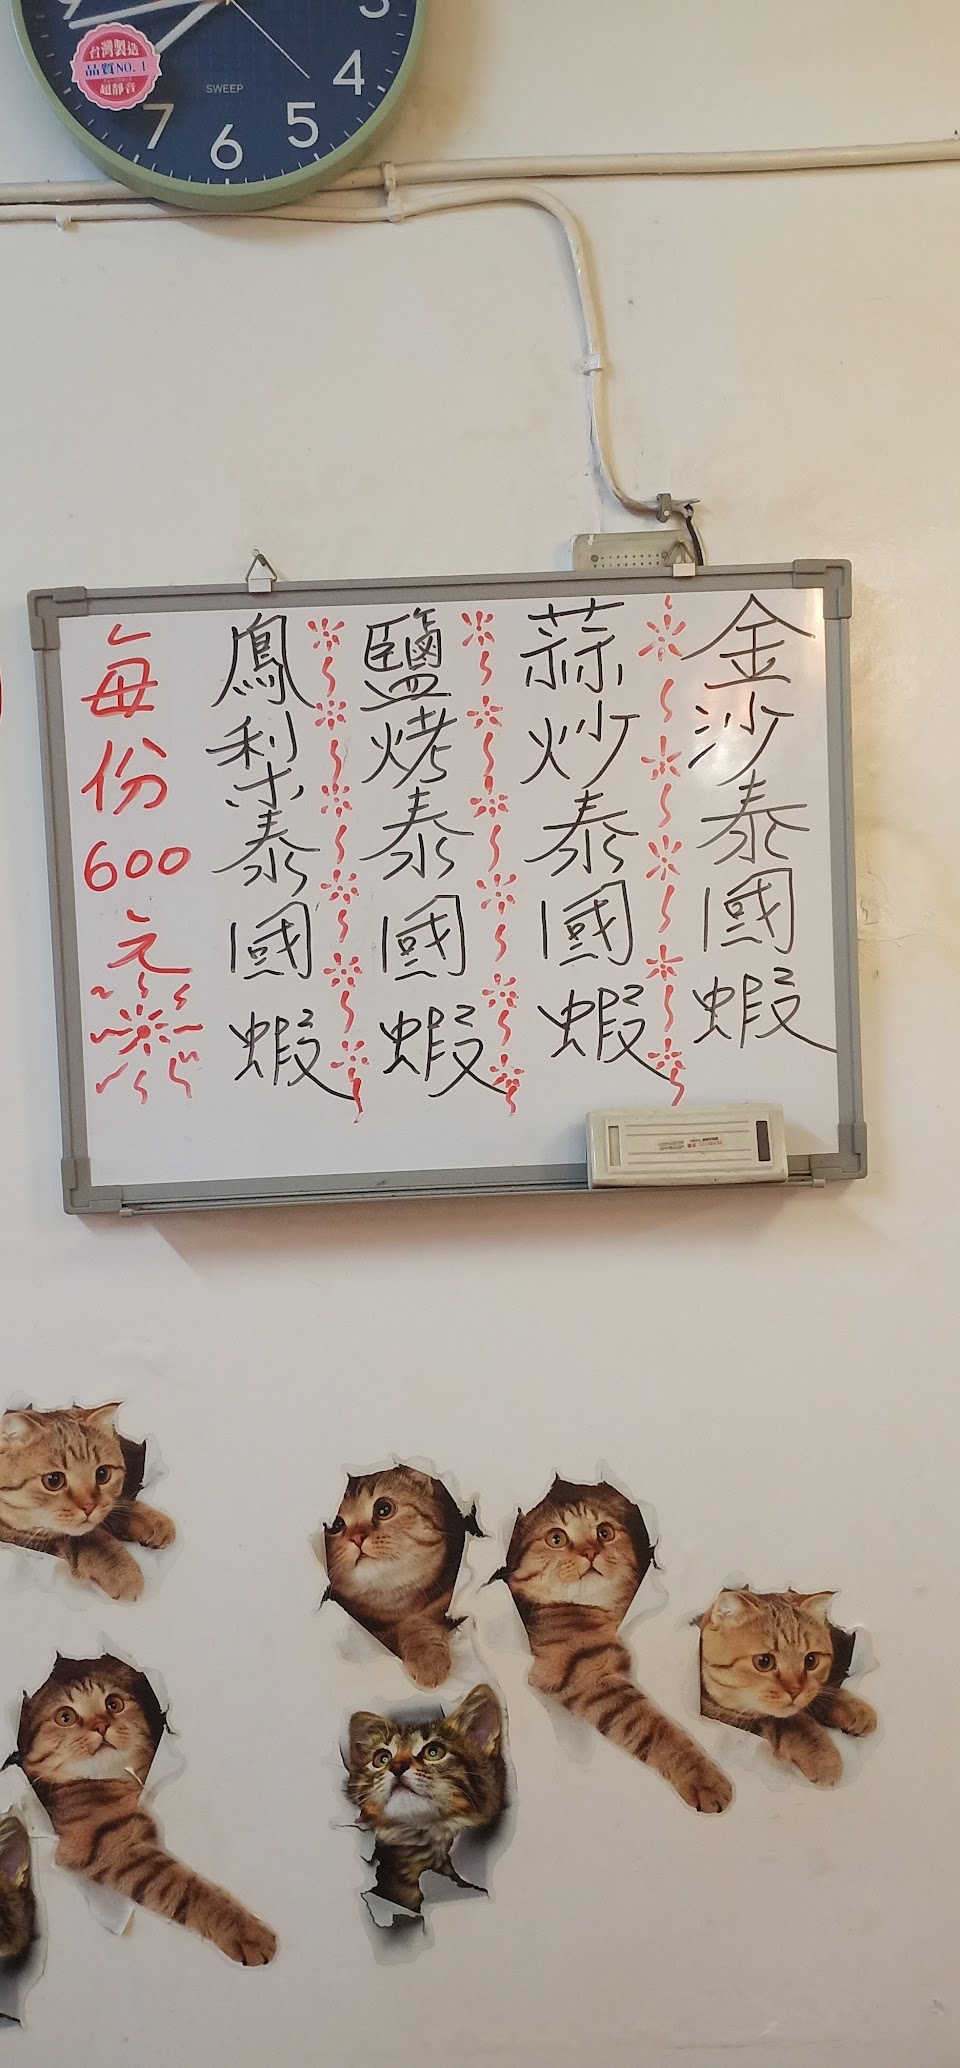 3
4
5
6
7
SWEEP
台灣製造
品質NO.1
超靜音
金沙泰國蝦
蒜炒泰國蝦
鹽烤泰國蝦
鳳梨泰國蝦
每份600元